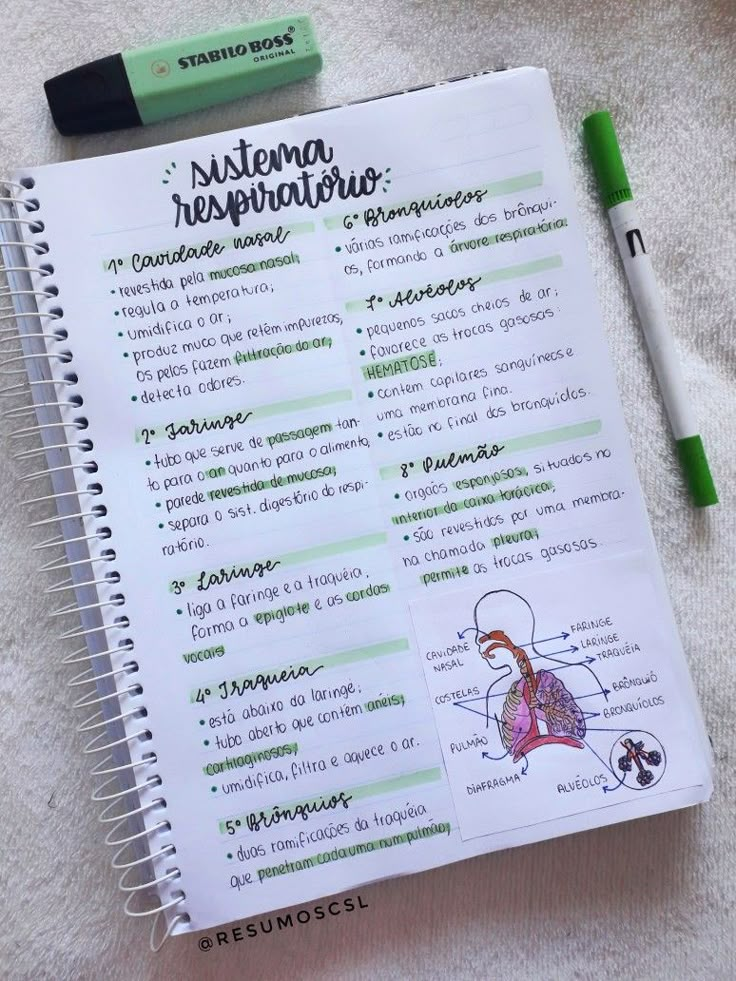 STABILO BOSS
ORIGINAL
sistema
respiratório
1º Cavidade nasal
• revestida pela mucosa nasal;
• regula a temperatura;
• umidifica o ar;
• produz muco que retém impurezas,
os pelos fazem filtração do ar;
• detecta odores.
2º Faringe
• tubo que serve de passagem tan-
to para o ar quanto para o alimento,
• parede revestida de mucosa;
• separa o sist. digestório do respi-
ratório.
3º Laringe
• liga a faringe e a traquéia,
forma a epiglote e as cordas
vocais
4º Traqueia
• está abaixo da laringe;
• tubo aberto que contém anéis;
cartilaginosos;
• umidifica, filtra e aquece o ar.
5º Brônquios
• duas ramificações da traquéia
que penetram cada uma num pulmão;
6º Bronquíolos
• várias ramificações dos brônqui-
os, formando a árvore respiratória.
7º Alvéolos
• pequenos sacos cheios de ar;
• favorece as trocas gasosas:
HEMATOSE;
• contem capilares sanguíneos e
uma membrana fina.
• estão no final dos bronquiolos.
8º Pulmão
• orgãos esponjosos, situados no
interior da caixa torácica;
• são revestidos por uma membra-
na chamada pleura;
permite as trocas gasosas.
CAVIDADE
NASAL
FARINGE
LARINGE
TRAQUÉIA
COSTELAS
BRÔNQUIO
BRONQUÍOLOS
PULMÃO
DIAFRAGMA
ALVÉOLOS
@RESUMOSCSL